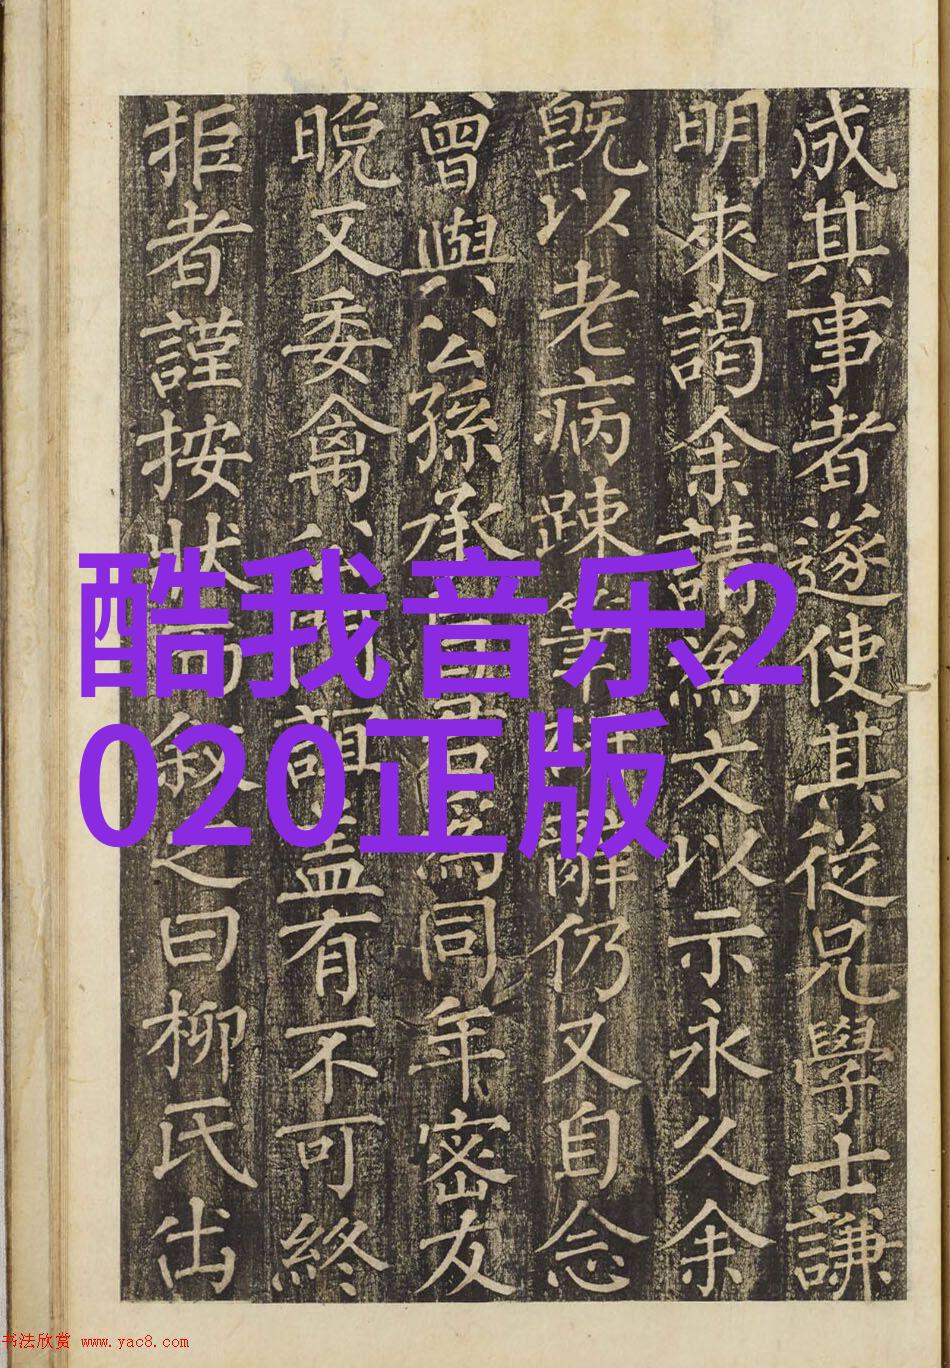 成其事者遂使其從兄學士謙
明來謁余請為文以示永久余
既以老病踈筆辭仍又自念
曾與公孫承君為同年密友
晚又委禽公門盖有不可終
拒者謹按狀而叙之曰柳氏出
酷我音乐2
020正版
书法欣赏 www.yac8.com